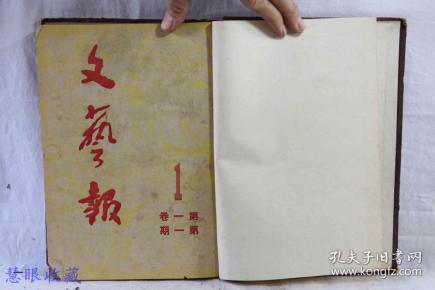 文藝報
1
第一卷
第一期
慧眼收藏
孔夫子旧书网
www.kongfz.com